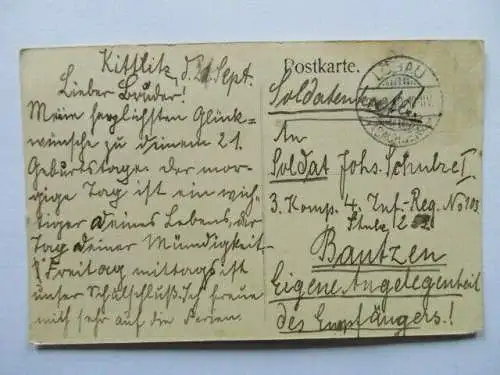 Kittlitz, d. 21. Sept.
Lieber Bruder!
Meine herzlichsten Glück-
wünsche zu deinem 21.
Geburtstage. der mor-
gige Tag ist ein wich-
tiger deines Lebens, der
Tag deiner Mündigkeit.
Freitag mittags ist
unser Schulschluß. Ich freue
mich sehr auf die Ferien.
Postkarte.
LÖBAU
Soldatenkarte!
An
Soldat Johs. Schulze I
3. Komp. 4. Inf.-Reg. No 103
Stube
Bautzen
Eigene Angelegenheit
des Empfängers!